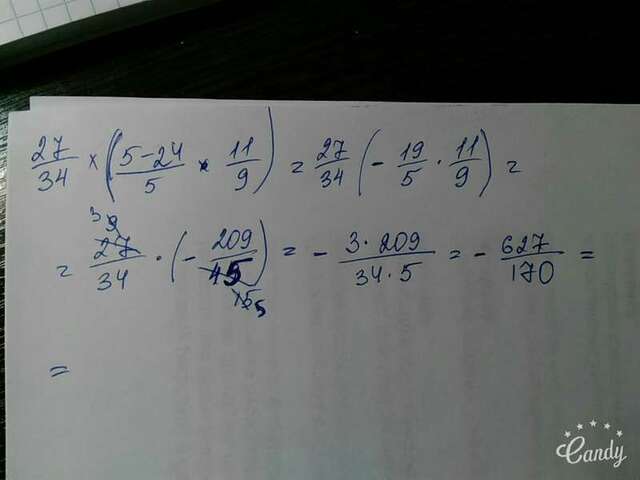 27/34 × (5-24/5 × 11/9) = 27/34 (- 19/5 · 11/9) =
= 27/34 · (- 209/45) = - 3·209/34·5 = - 627/170 =
3 9
15 5
=
Candy